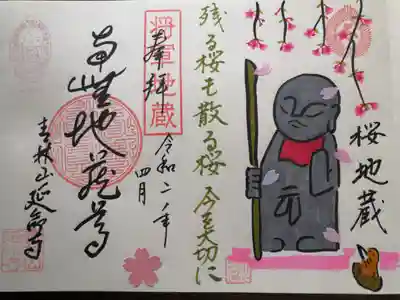 桜地蔵
残る桜も散る桜 今
切に
将軍地蔵
奉拝
令和二年
四月
地蔵尊
林山延命寺